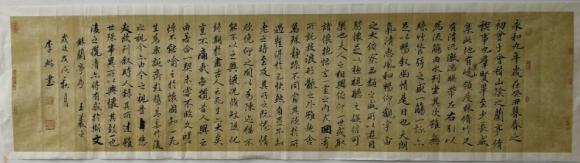 永和九年歲在癸丑暮春之
初會于會稽山陰之蘭亭脩
禊事也羣賢畢至少長咸
集此地有崇領茂林脩竹又
有清流激湍暎帶左右引以
為流觴曲水列坐其次雖無
絲竹管絃之盛一觴一詠亦
足以暢敘幽情是日也天朗
氣清惠風和暢仰觀宇宙
之大俯察品類之盛所以遊目
騁懷足以極視聽之娛信可
樂也夫人之相與俯仰一世或取
諸懷抱悟言一室之內或因寄
所託放浪形骸之外雖趣舍
萬殊靜躁不同當其欣於所
遇暫得於己快然自足不知
老之將至及其所之既惓情
欣俛仰之間以為陳迹猶不
能不以之興懷況脩短隨化
終期於盡古人云死生亦大矣
豈不痛哉每攬昔人興感
之由若合一契未嘗不臨文嗟
悼不能喻之於懷固知一死
生為虛誕齊彭殤為妄作後
之視今亦由今之視昔悲
夫故列敘時人錄其所述雖
世殊事異所以興懷其致一也
後之攬者亦將有感於斯文
錄蘭亭序 王羲之
戊戌 秋月
李 書